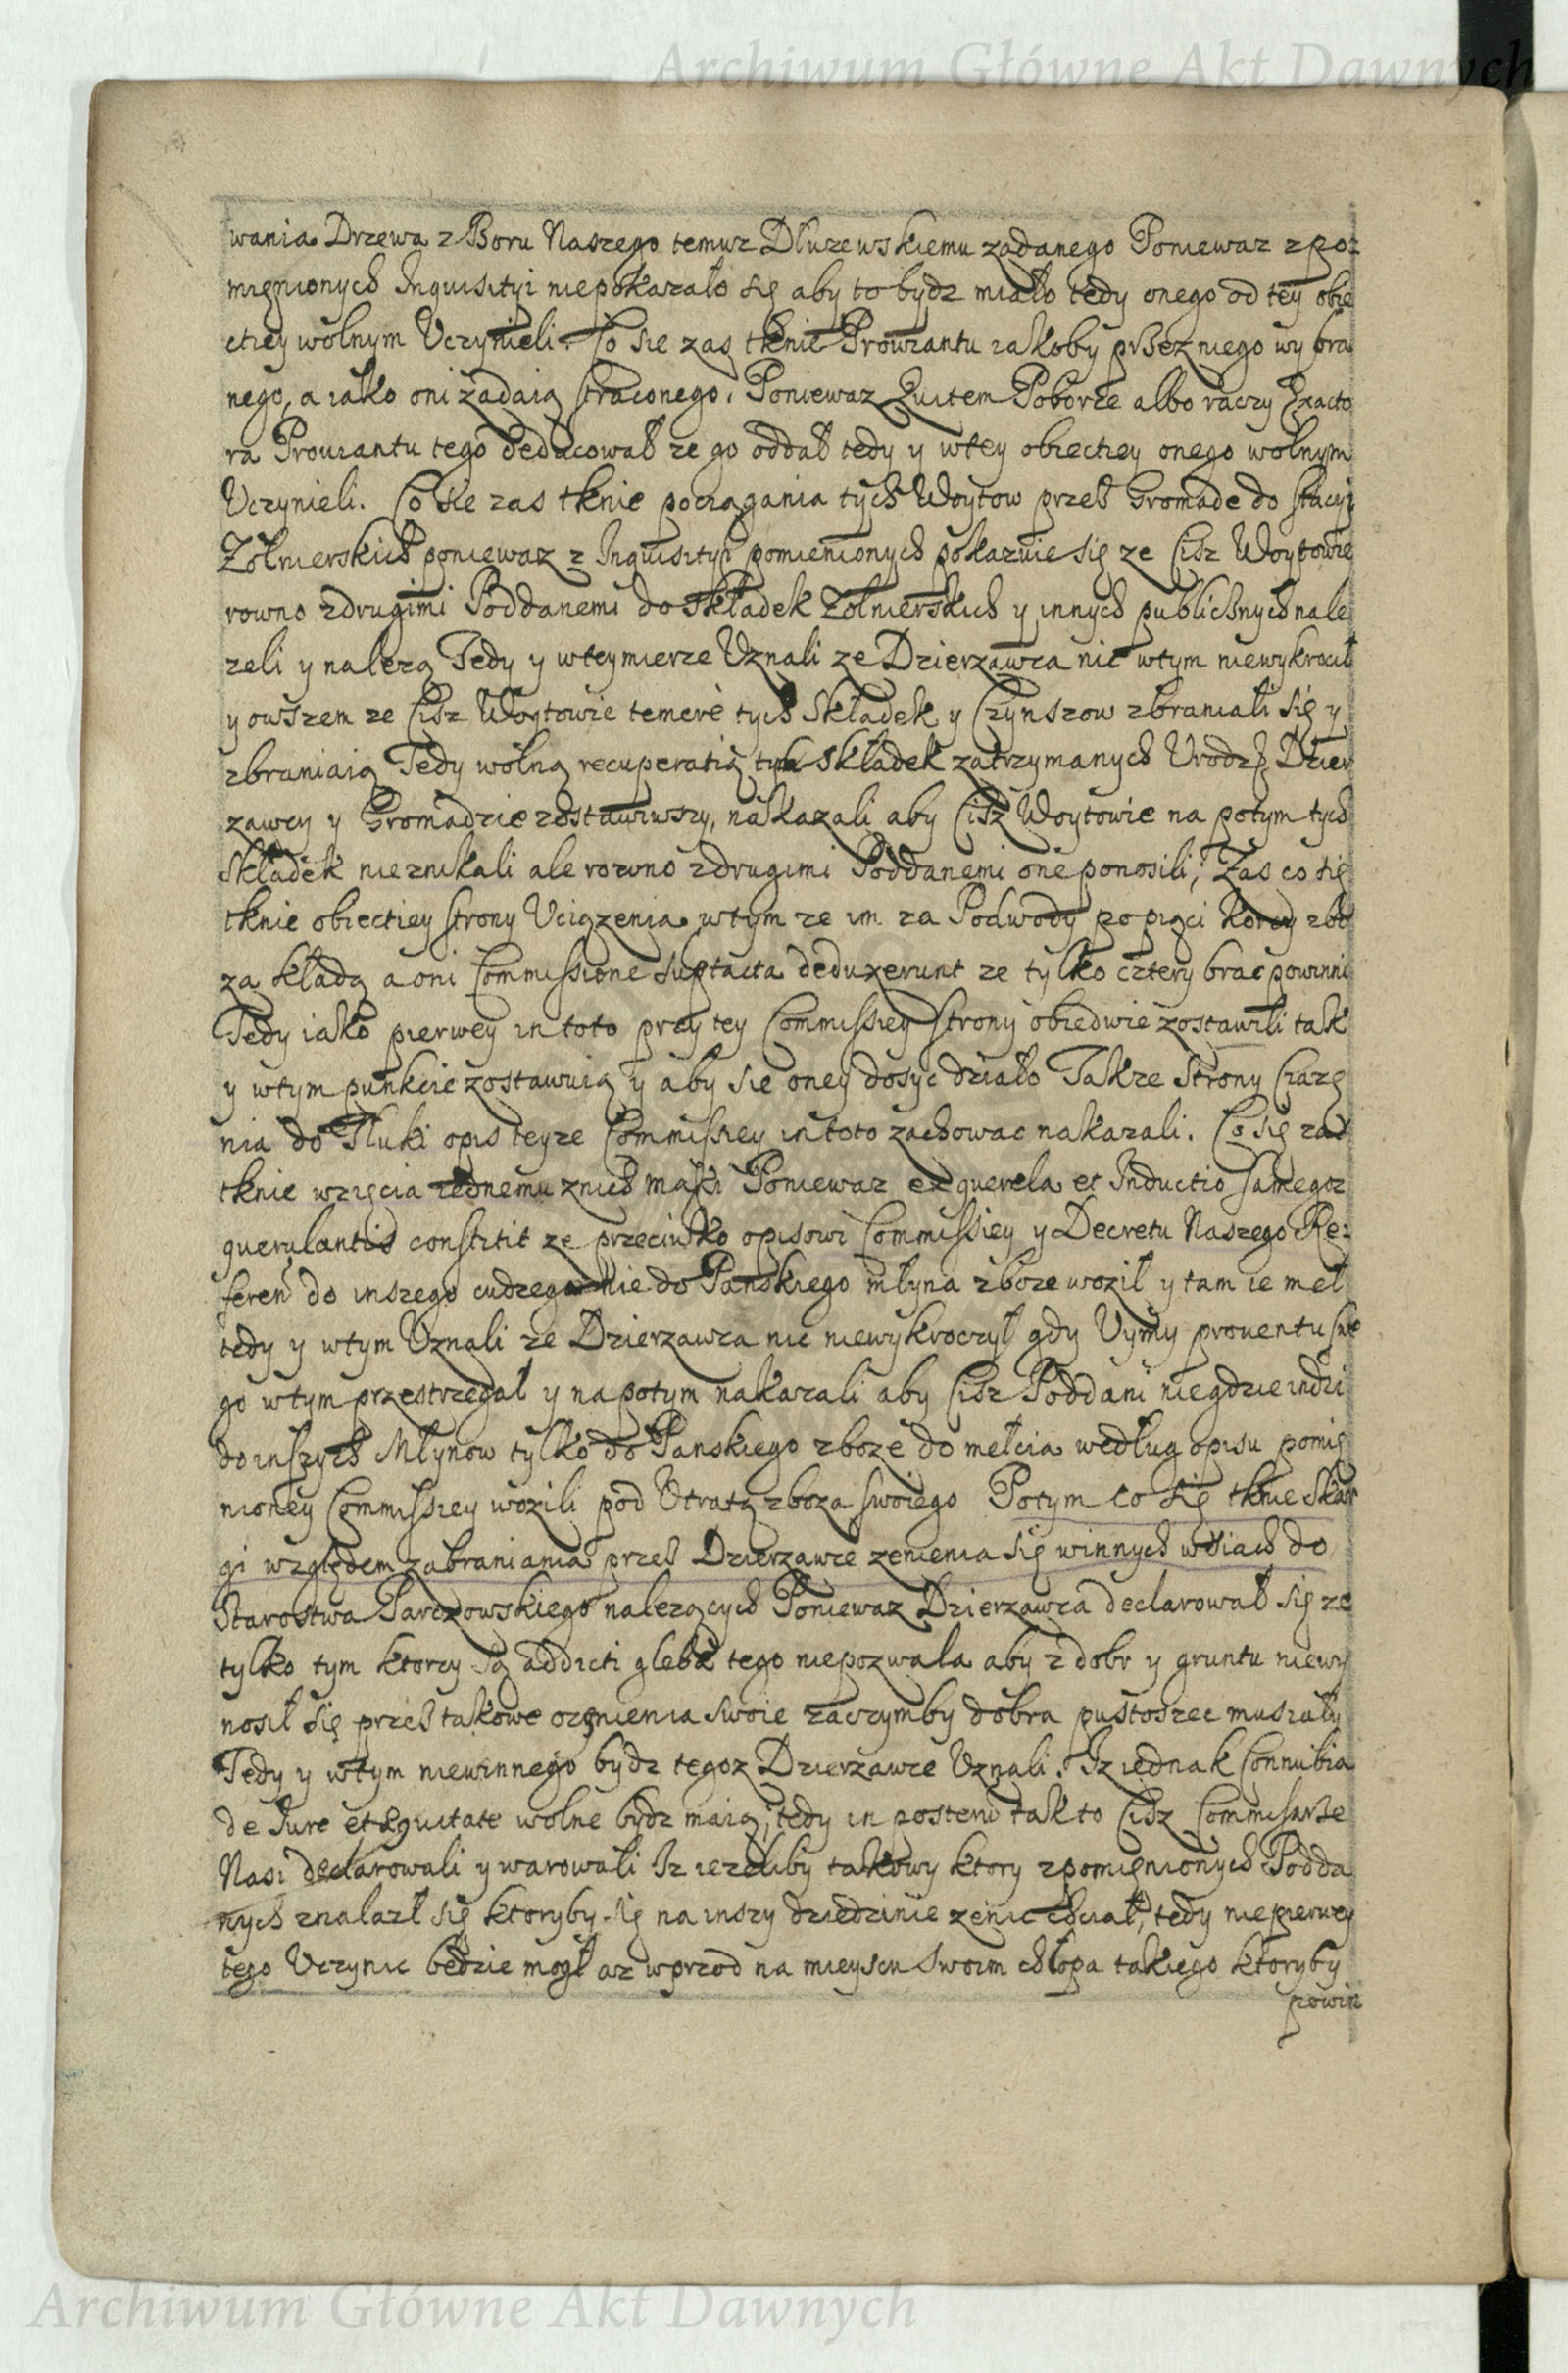 Archiwum Główne Akt Dawnych
wania Drzewa z Boru Naszego temuz Dłuzewskiemu zadanego Poniewaz z po=
mięnionych Inquisityi niepokazało się aby to bydz miało tedy onego od tey obie
ctiey wolnym Vczynieli. Co sie zas tknie Prowiantu iakoby przez niego wybra
nego, a iako oni zadaią straconego, Poniewaz Quitem Poborce albo raczy Exacto
ra Prowiantu tego deducował ze go oddał tedy y wtey obiectiey onego wolnym
Vczynieli. Co sie zas tknie pociągania tych Woytow przes Gromade do stacyi
Zołnierskich poniewaz z Inquisityi pomienionych pokazuie się ze Cisz Woytowie
rowno zdrugimi Poddanemi do składek Zołnierskich y innych publicznych nale
zeli y nalezą Tedy y wteymierze Vznali ze Dzierzawca nic wtym niewykrocił
y owszem ze Cisz Woytowie temerè tych Składek y Czynszow zbraniali się y
zbraniaią Tedy wolną recuperatią tych Składek zatrzymanych Vrodz. Dzier
zawcy y Gromadzie zostawiwszy, nakazali aby Cisz Woytowie na potym tych
Składek nieznikali ale rowno zdrugimi Poddanemi one ponosili, Zas co się
tknie obiectiey strony Vciązenia wtym ze im za Podwody po pięci Korcy zbo
za kładą a oni Commissione suptacta deduxerunt ze tylko cztery brac powinni
Tedy iako pierwey in toto przy tey Commissiey strony obiedwie zostawili tak
y wtym punkcie zostawuią y aby sie oney dosyc działo Takze Strony Ciązę
nia do Tłuki opis teyze Commissiey in toto zachowac nakazali. Co się zas
tknie wzięcia iednemu znich mąki Poniewaz ex querela et Inductio samegoz
querulantis constitit ze przeciwko opisowi Commissiey y Decretu Naszego Re=
feren do inszego cudzego nie do Panskiego młyna zboze woził y tam ie meł
tedy y wtym Vznali ze Dzierzawca nic niewykroczył gdy Vymy proventu swe
go wtym przestrzegał y napotym nakazali aby Cisz Poddani niegdzieindzi
do inszych Młynow tylko do Panskiego zboze do mełcia według opisu pomię
nioney Commissiey wozili pod Vtratą zboza swoiego Potym co się tknie Skar
gi względem zabraniania przes Dzierzawce zenienia się winnych wsiach do
Starostwa Parczowskiego nalezących Poniewaz Dzierzawca declarował się ze
tylko tym ktorzy są addicti glebæ tego niepozwala aby z dobr y gruntu niewy
nosił się przes takowe ozęnienia swoie zaczymby dobra pustoszec musiały
Tedy y wtym niewinnego bydz tegoz Dzierzawce Vznali. Iz iednak Connubia
de Iure et Æquitate wolne bydz maią, tedy in poster tak to Cisz Commisarze
Nasi declarowali y warowali Iz iezeliby takowy ktory zpomięnionych Podda
nych znalazł się ktoryby się na inszy dziedzinie zenic chciał, tedy niepierwey
tego Vczynic będzie mogł az wprzod na mieyscu swoim chłopa takiego ktoryby
powin
Archiwum Główne Akt Dawnych